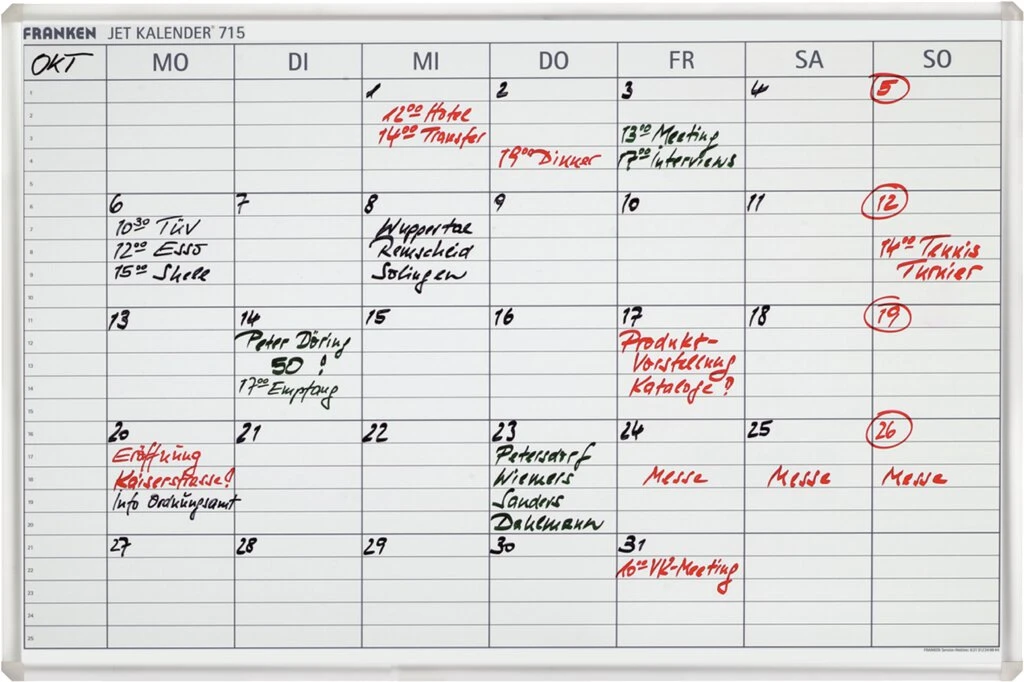 FRANKEN JET KALENDER® 715
OKT MO DI MI DO FR SA SO
1 2 3 4 5
12⁰⁰ Hotel
14⁰⁰ Transfer
19⁰⁰ Dinner
13¹⁰ Meeting
17⁰⁰ Interviews
6 7 8 9 10 11 12
10³⁰ TÜV
12⁰⁰ ESSO
15⁰⁰ Shell
Wuppertal
Remscheid
Solingen
14⁰⁰ Tennis
Turnier
13 14 15 16 17 18 19
Peter Döring
50 !
17⁰⁰ Empfang
Produkt-
Vorstellung
Kataloge?
20 21 22 23 24 25 26
Eröffnung
Kaiserstrasse!
Info Ordnungsamt
Petersdorf
Wiemers
Sanders
Dahlmann
Messe
Messe
Messe
27 28 29 30 31
10⁰⁰ VK-Meeting
1
2
3
4
5
6
7
8
9
10
11
12
13
14
15
16
17
18
19
20
21
22
23
24
25